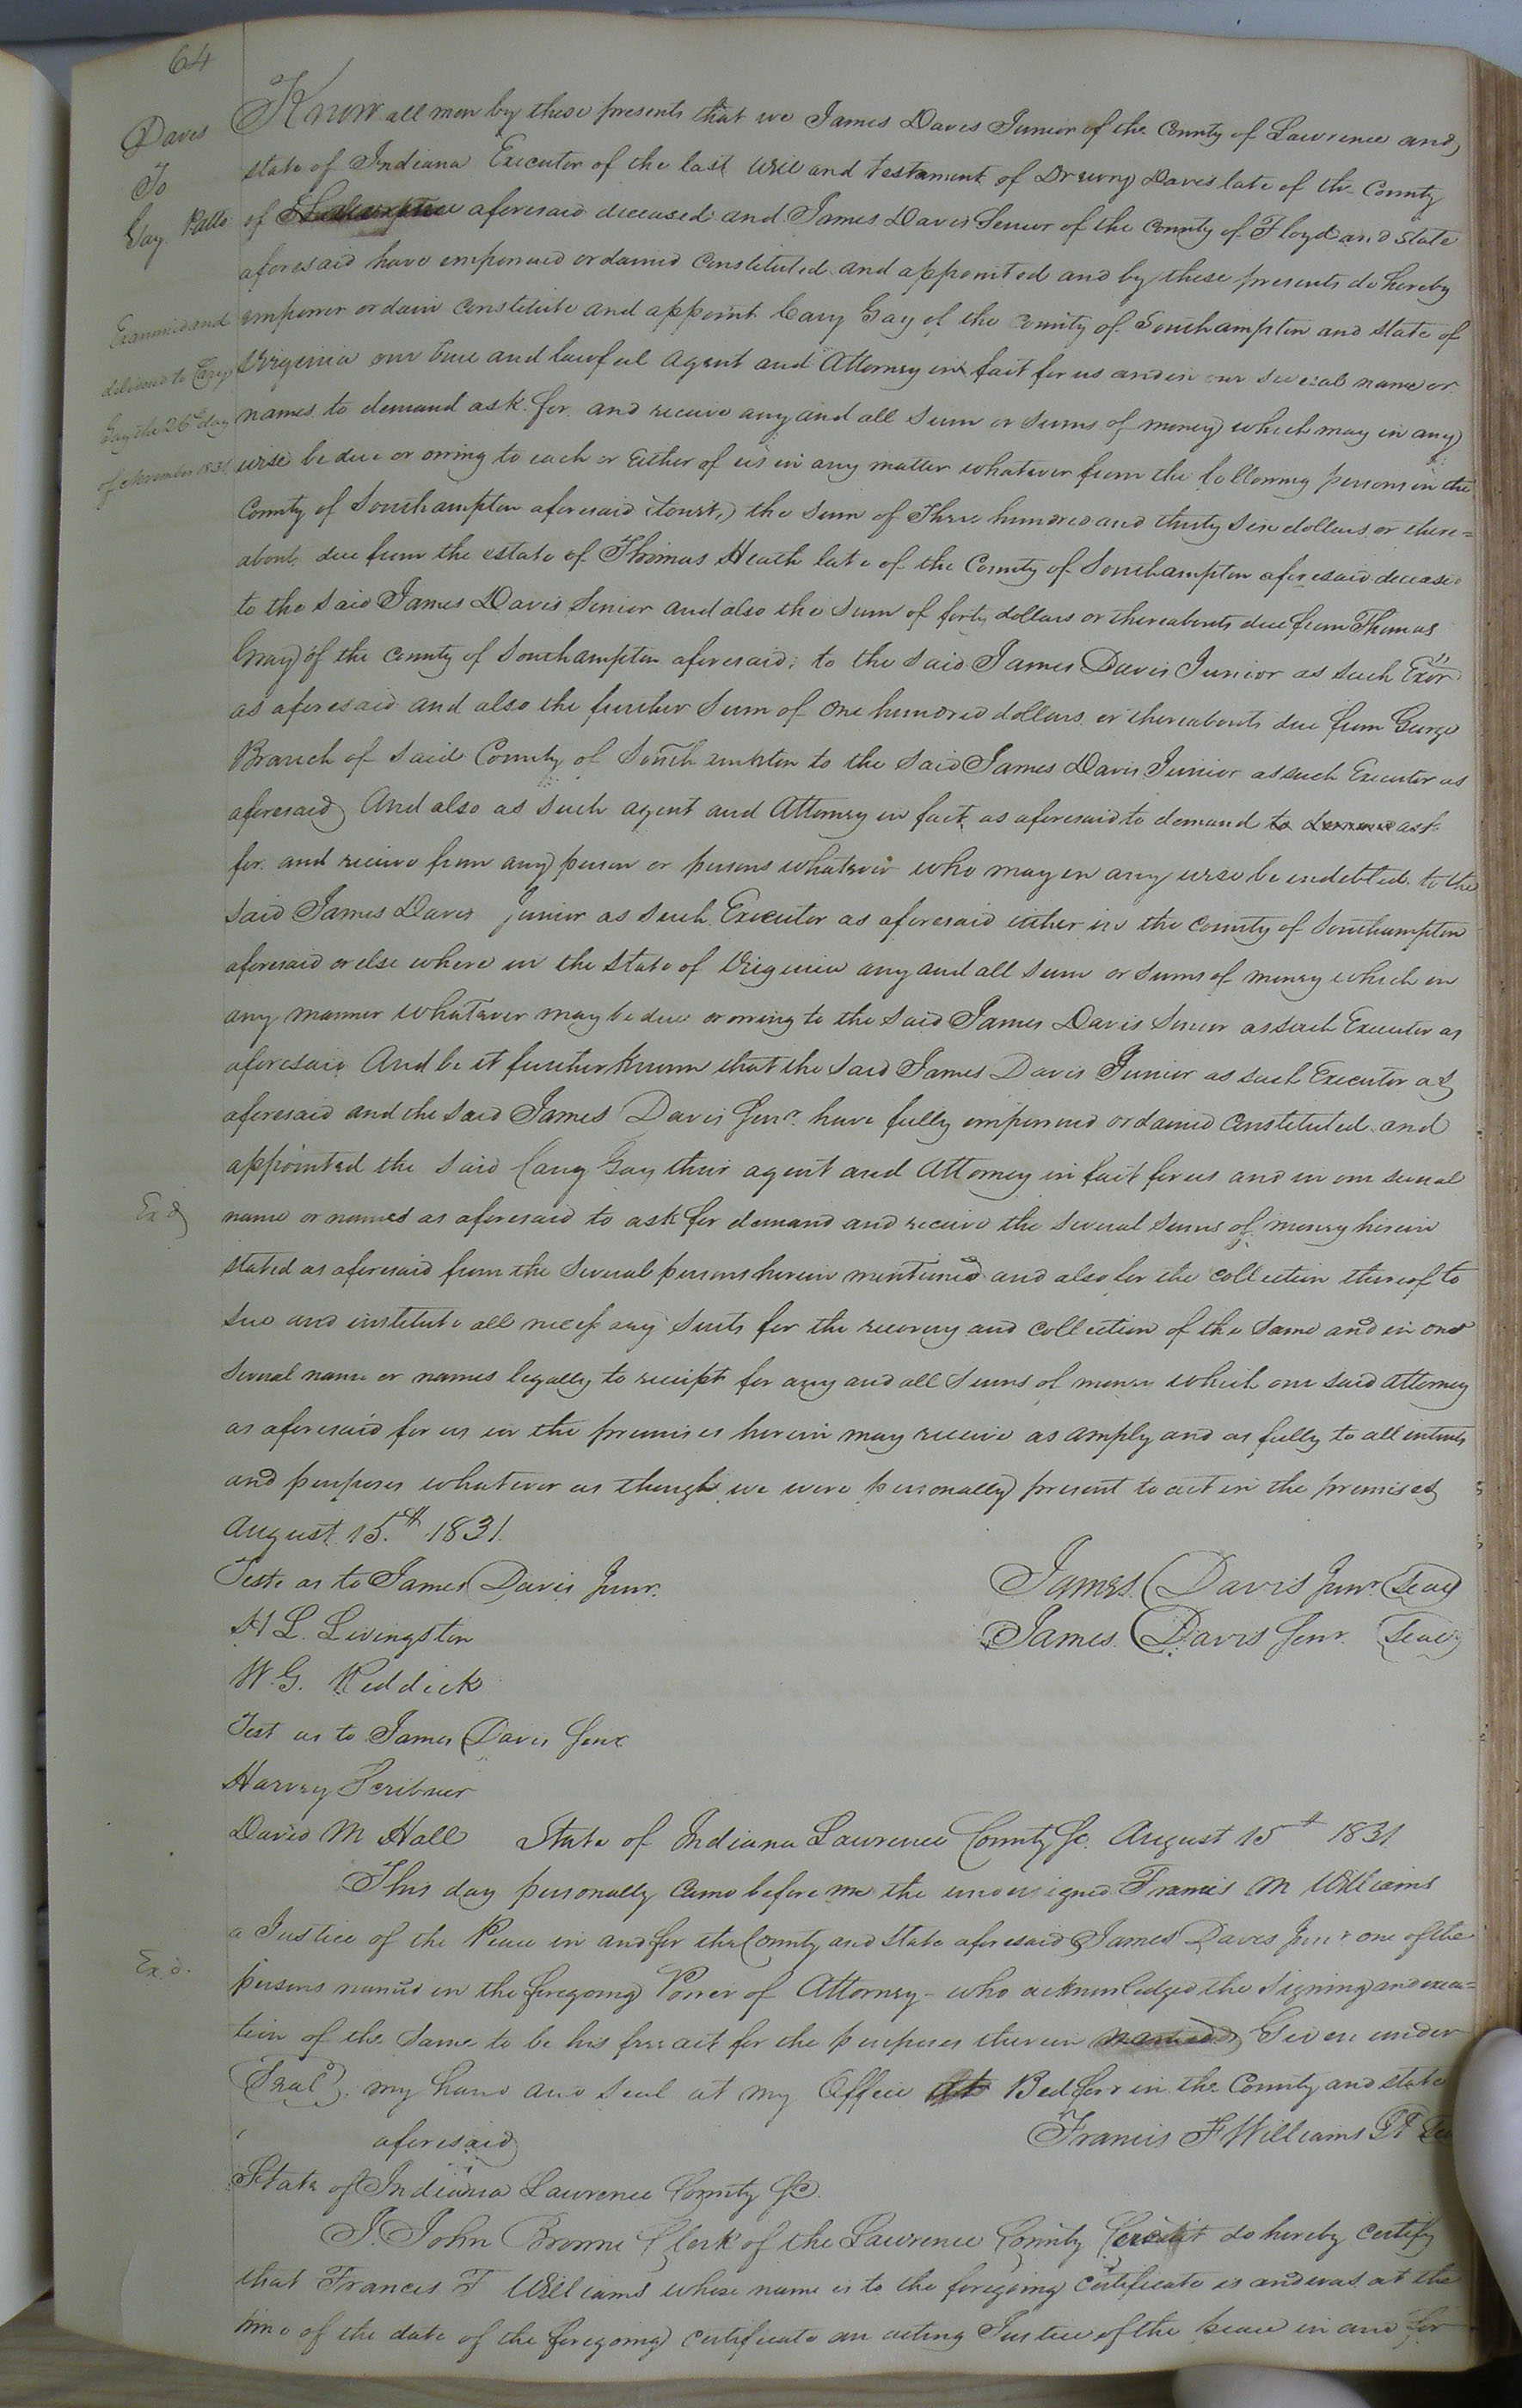 64
Davis
To
Gay Patto
Examined and
delivered to Cary
Gay the 26th day
of November 1831
Know all men by these presents that we James Davis Junior of the County of Lawrence and
state of Indiana Executor of the last will and testament of Drewry Davis late of the County
of aforesaid deceased and James Davis Senior of the County of Floyd and State
aforesaid have empowered ordained constituted and appointed and by these presents do hereby
empower ordain constitute and appoint Cary Gay of the County of Southampton and State of
Virginia our true and lawful Agent and Attorney in fact for us and in our several name or
names to demand ask for and receive any and all Sum or Sums of money which may in any
wise be due or owing to each or Either of us in any matter whatever from the following persons in the
County of Southampton aforesaid (towit,) the Sum of Three hundred and thirty Six dollars or there=
about due from the estate of Thomas Heath late of the County of Southampton aforesaid deceased
to the said James Davis Senior and also the Sum of forty dollars or thereabouts due from Thomas
Gray of the County of Southampton aforesaid; to the said James Davis Junior as such Exor
as aforesaid and also the further Sum of One hundred dollars or thereabouts due from George
Branch of said County of Southampton to the said James Davis Junior as such Executor as
aforesaid And also as such agent and Attorney in fact as aforesaid to demand to ask
for and receive from any person or persons whatever who may in any wise be indebted to the
Said James Davis Junior as such Executor as aforesaid either in the County of Southampton
aforesaid or else where in the State of Virginia any and all Sum or Sums of money which in
any manner whatever may be due or owing to the said James Davis Senior as such Executor as
aforesaid And be it further known that the said James Davis Junior as such Executor as
aforesaid and the said James Davis Senr. have fully empowered ordained constituted and
appointed the said Cary Gay their agent and Attorney in fact for us and in our several
Exd
name or names as aforesaid to ask for demand and receive the several sums of money herein
stated as aforesaid from the Several persons herein mentioned and also for the collection thereof to
sue and institute all necessary suits for the recovery and collection of the same and in our
several name or names legally to receipt for any and all Sums of money which our said Attorney
as aforesaid for us in the premises herein may receive as amply and as fully to all intents
and purposes whatever as though we were personally present to act in the premises
August 15th 1831.
Teste as to James Davis Junr.
James Davis Junr. Seal
H L. Livingston
James Davis Senr. Seal
W. G. Reddick
Test as to James Davis Senr
Harvey Scribner
David M Hall State of Indiana Lawrence County Sc. August 15th 1831
This day personally came before me the undersigned Francis M Williams
a Justice of the Peace in and for the County and State aforesaid James Davis Junr one of the
Ex.d.
persons named in the foregoing Power of Attorney - who acknowledged the Signing and execu=
tion of the same to be his free act for the purposes therein named Given under
Seal my hand and seal at my Office At Bedford in the County and state
aforesaid Francis F Williams JP
State of Indiana Lawrence County Sc.
I. John Browne Clerk of the Lawrence County Circuit do hereby certify
that Francis F Williams whose name is to the foregoing Certificate is and was at the
time of the date of the foregoing certificate an acting Justice of the peace in and for